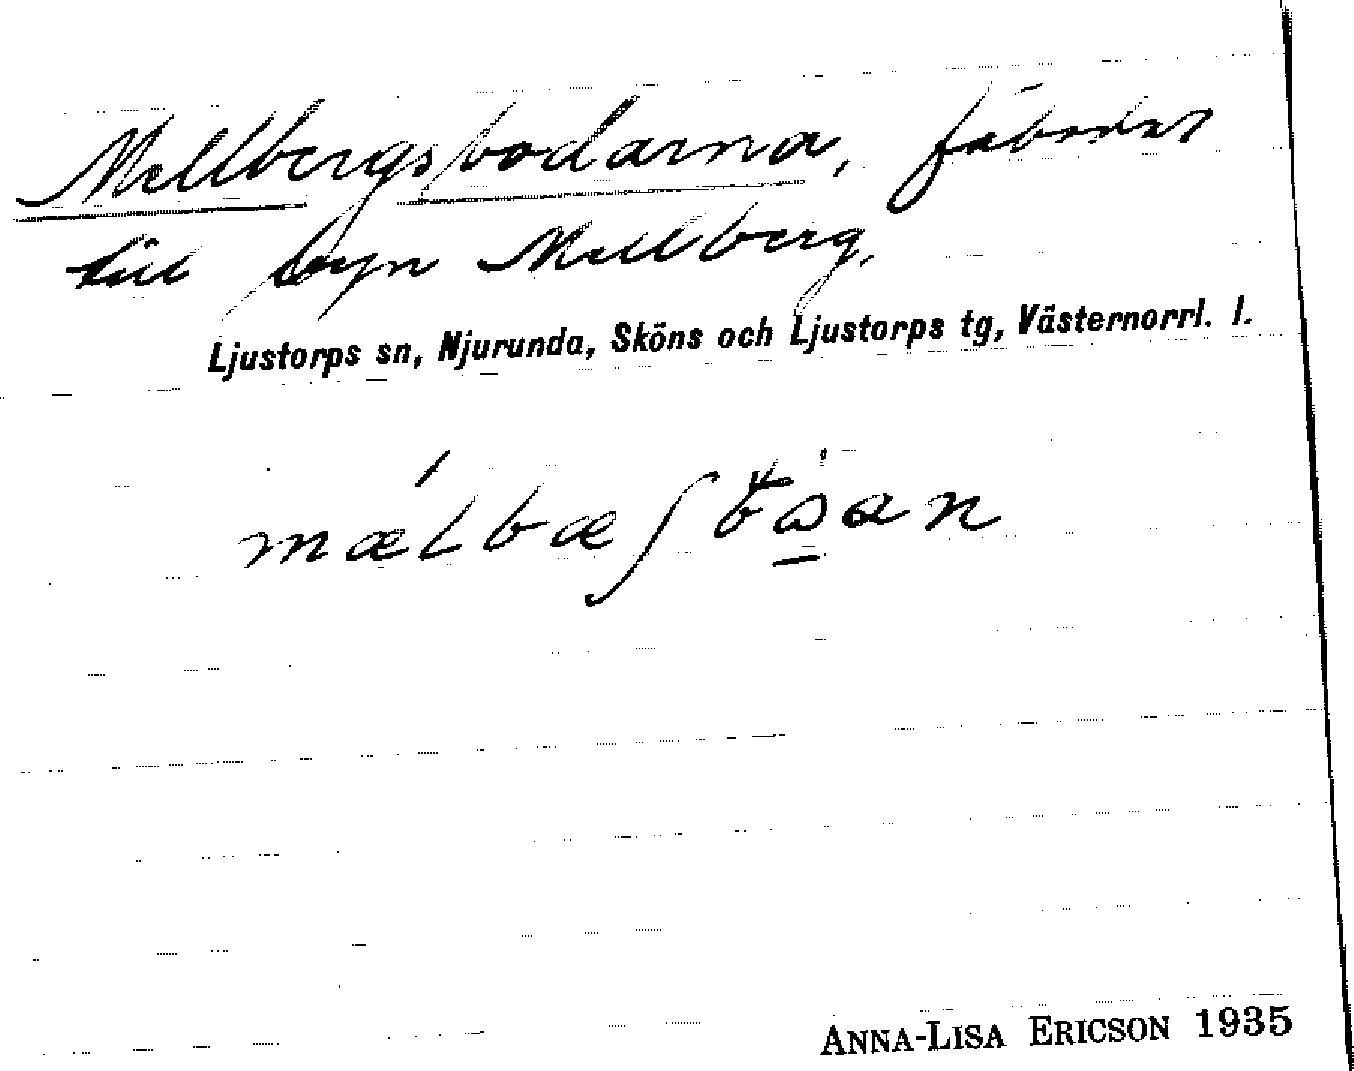 Mellbergsbodarna, fäbodar
till byn Mellberg.
Ljustorps sn, Njurunda, Sköns och Ljustorps tg, Västernorrl. l.
ANNA-LISA ERICSON 1935